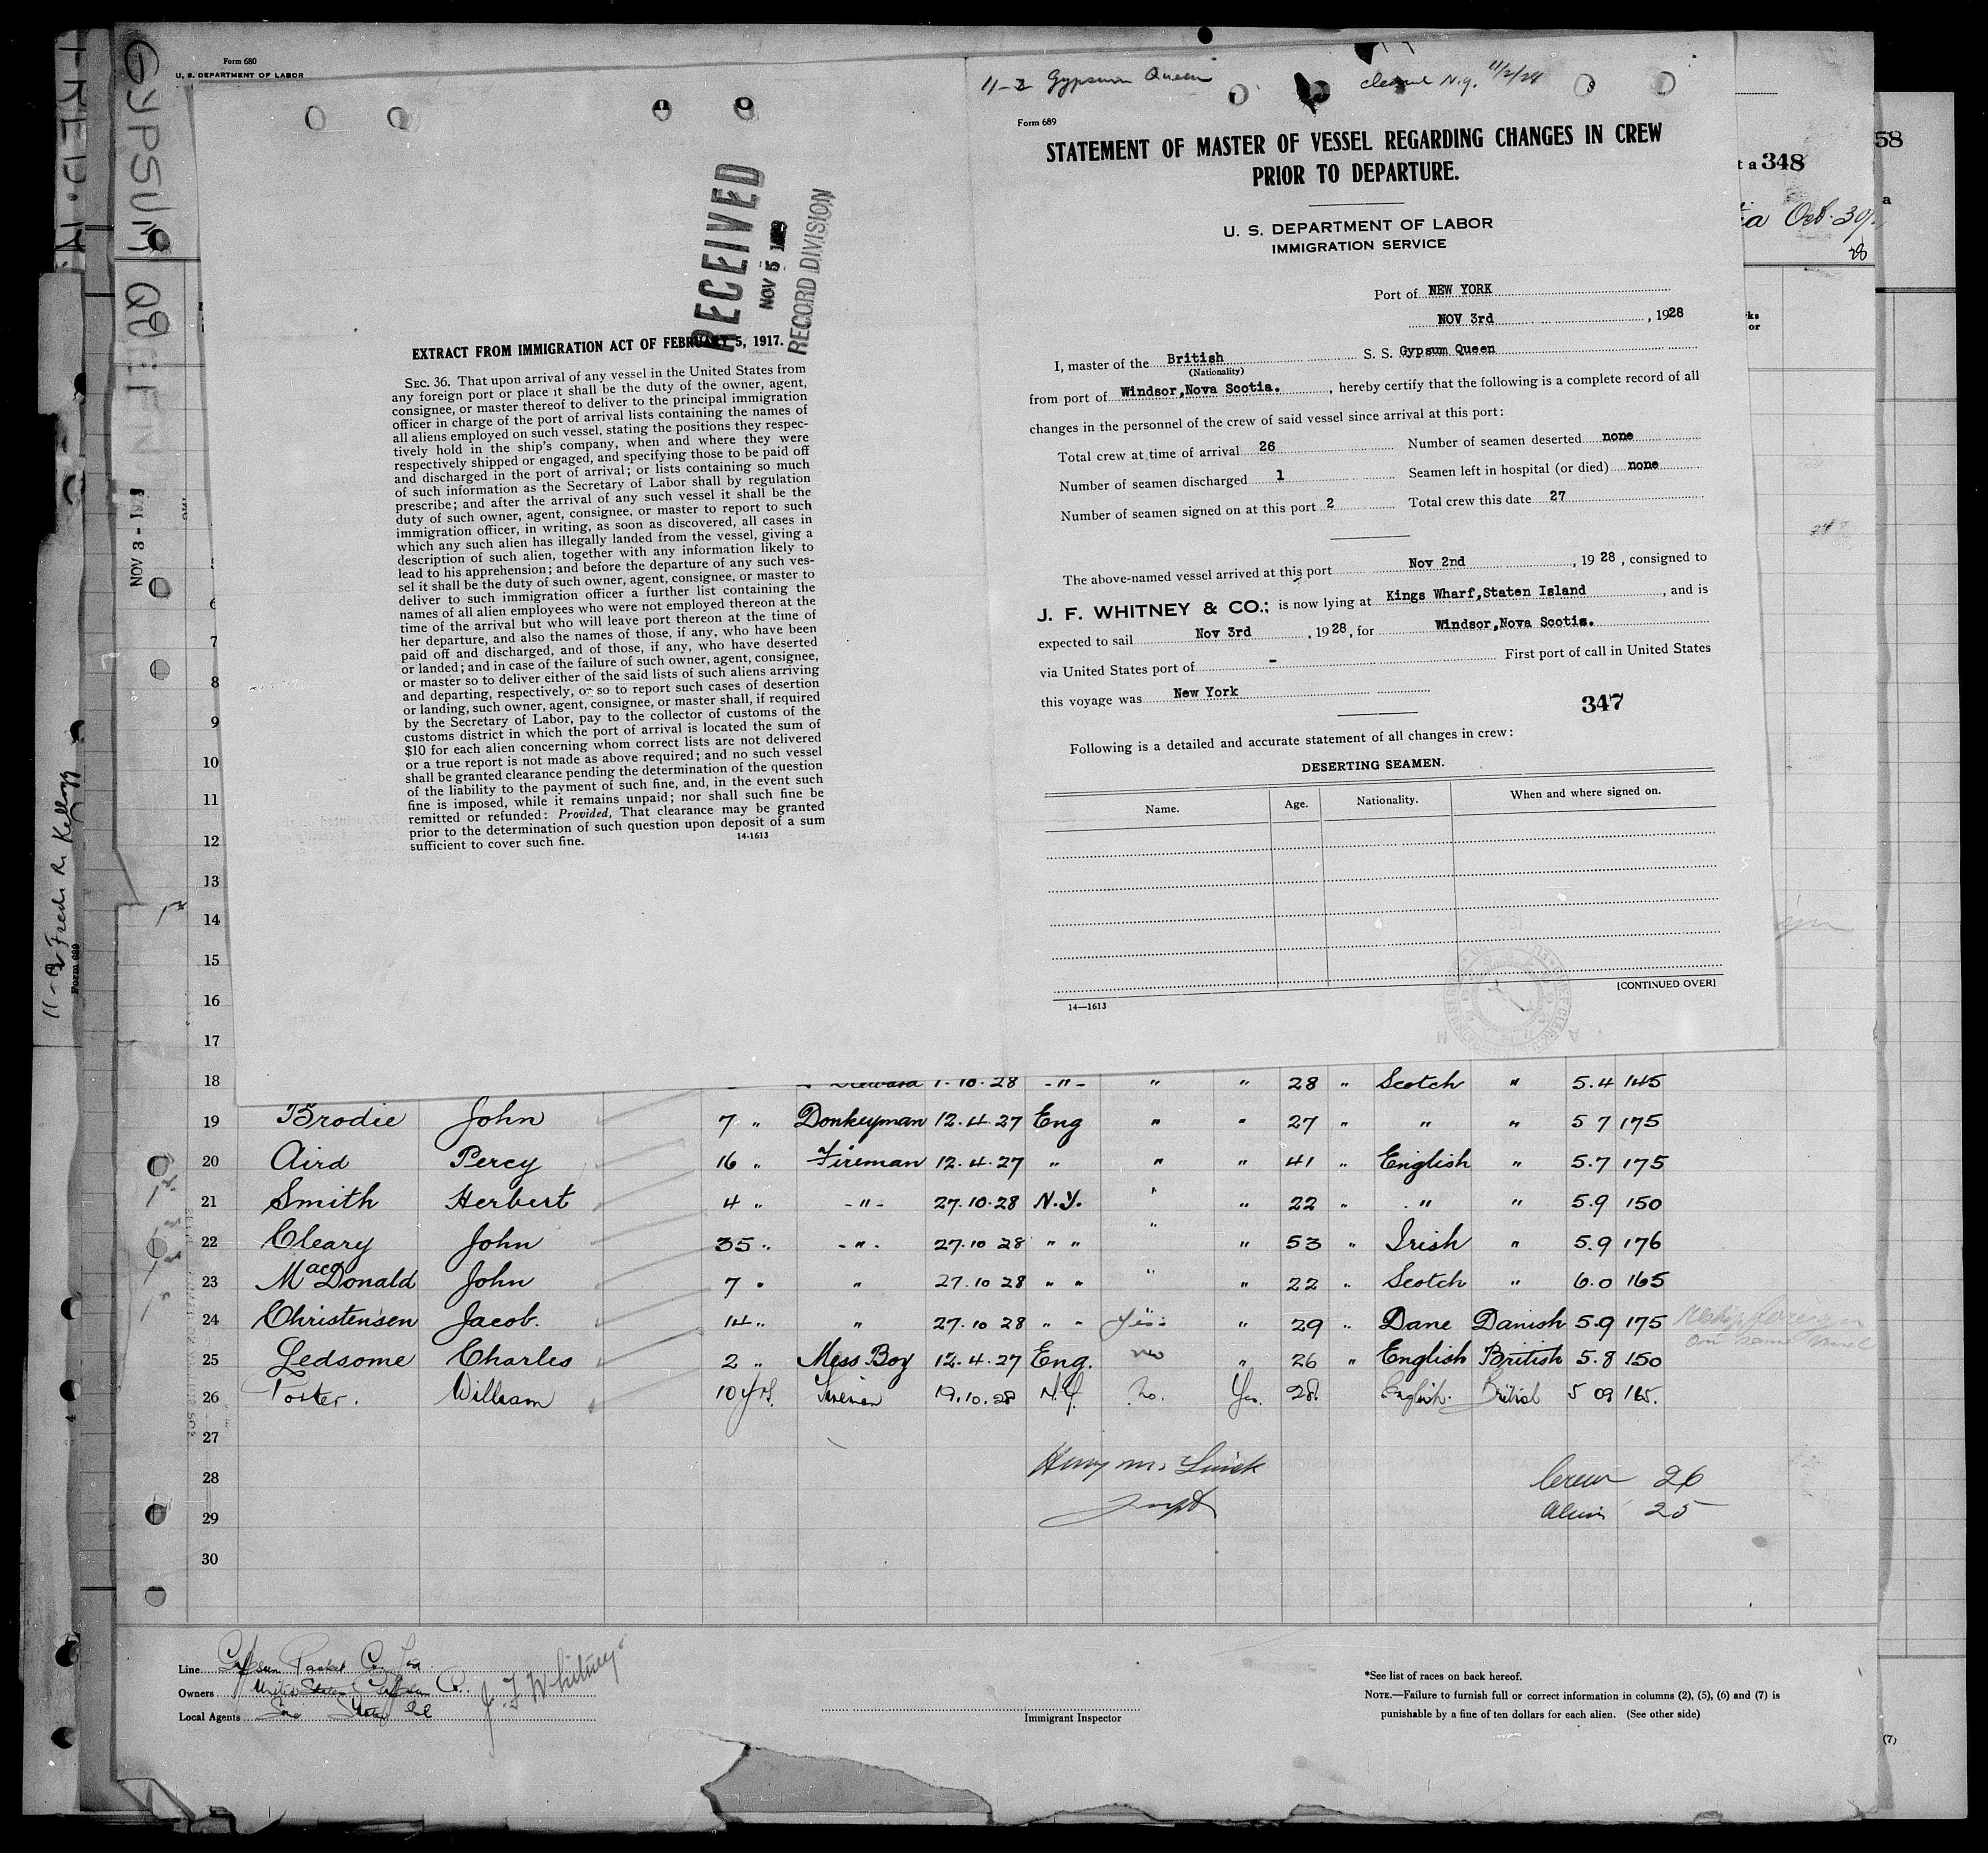 Form 680
U. S. DEPARTMENT OF LABOR
GYPSUM QUEEN
NOV 3 - 1928
11-2 Fredk R. Kellogg
Form 689
RECEIVED
NOV 5 1928
RECORD DIVISION
EXTRACT FROM IMMIGRATION ACT OF FEBRUARY 5, 1917.
SEC. 36. That upon arrival of any vessel in the United States from
any foreign port or place it shall be the duty of the owner, agent,
consignee, or master thereof to deliver to the principal immigration
officer in charge of the port of arrival lists containing the names of
all aliens employed on such vessel, stating the positions they respec-
tively hold in the ship's company, when and where they were
respectively shipped or engaged, and specifying those to be paid off
and discharged in the port of arrival; or lists containing so much
of such information as the Secretary of Labor shall by regulation
prescribe; and after the arrival of any such vessel it shall be the
duty of such owner, agent, consignee, or master to report to such
immigration officer, in writing, as soon as discovered, all cases in
which any such alien has illegally landed from the vessel, giving a
description of such alien, together with any information likely to
lead to his apprehension; and before the departure of any such ves-
sel it shall be the duty of such owner, agent, consignee, or master to
deliver to such immigration officer a further list containing the
names of all alien employees who were not employed thereon at the
time of the arrival but who will leave port thereon at the time of
her departure, and also the names of those, if any, who have been
paid off and discharged, and of those, if any, who have deserted
or landed; and in case of the failure of such owner, agent, consignee,
or master so to deliver either of the said lists of such aliens arriving
and departing, respectively, or so to report such cases of desertion
or landing, such owner, agent, consignee, or master shall, if required
by the Secretary of Labor, pay to the collector of customs of the
customs district in which the port of arrival is located the sum of
$10 for each alien concerning whom correct lists are not delivered
or a true report is not made as above required; and no such vessel
shall be granted clearance pending the determination of the question
of the liability to the payment of such fine, and, in the event such
fine is imposed, while it remains unpaid; nor shall such fine be
remitted or refunded: Provided, That clearance may be granted
prior to the determination of such question upon deposit of a sum
sufficient to cover such fine.
14-1613
11-2 Gypsum Queen cleared N.Y. 11/2/28
Form 689
STATEMENT OF MASTER OF VESSEL REGARDING CHANGES IN CREW
PRIOR TO DEPARTURE.
U. S. DEPARTMENT OF LABOR
IMMIGRATION SERVICE
Port of NEW YORK
NOV 3rd , 1928
I, master of the British S. S. Gypsum Queen
(Nationality)
from port of Windsor,Nova Scotia. , hereby certify that the following is a complete record of all
changes in the personnel of the crew of said vessel since arrival at this port:
Total crew at time of arrival 26 Number of seamen deserted none
Number of seamen discharged 1 Seamen left in hospital (or died) none
Number of seamen signed on at this port 2 Total crew this date 27
The above-named vessel arrived at this port Nov 2nd , 19 28 , consigned to
J. F. WHITNEY & CO.; is now lying at Kings Wharf,Staten Island , and is
expected to sail Nov 3rd , 19 28, for Windsor,Nova Scotia.
via United States port of - First port of call in United States
this voyage was New York
347
Following is a detailed and accurate statement of all changes in crew:
DESERTING SEAMEN.
Name. Age. Nationality. When and where signed on.
14—1613 [CONTINUED OVER]
58
t a 348
a
ia Oct. 30/
28
ks
or
6
7
8
9
10
11
12
13
14
15
16
17
18 Steward 1.10.28 -"- " " 28 " Scotch " 5.4 145
19 Brodie John 7 " Donkeyman 12.4.27 Eng " " 27 " " " 5 7 175
20 Aird Percy 16 " Fireman 12.4.27 " " " 41 " English " 5.7 175
21 Smith Herbert 4 " -"- 27.10.28 N.Y. " " 22 " " " 5.9 150
22 Cleary John 35 " -"- 27.10 28 " " " " 53 " Irish " 5.9 176
23 MacDonald John 7 " " 27.10 28 " " " " 22 " Scotch " 6.0 165
24 Christensen Jacob. 14 " " 27.10 28 " " Yes " 29 " Dane Danish 5.9 175
25 Ledsome Charles 2 " Mess Boy 12.4.27 Eng. no " 26 " English British 5.8 150
26 Foster. William 10 yrs. Fireman 19.10.28 N.Y. No. Yes. 28. English. British 5 09 165.
27
28 Crew 26
29 Alien 25
30
Line Gypsum Packet Co. Ltd
Owners United States Gypsum Co.
Local Agents
J. F. Whitney
Immigrant Inspector
*See list of races on back hereof.
NOTE.—Failure to furnish full or correct information in columns (2), (5), (6) and (7) is
punishable by a fine of ten dollars for each alien. (See other side)
(7)